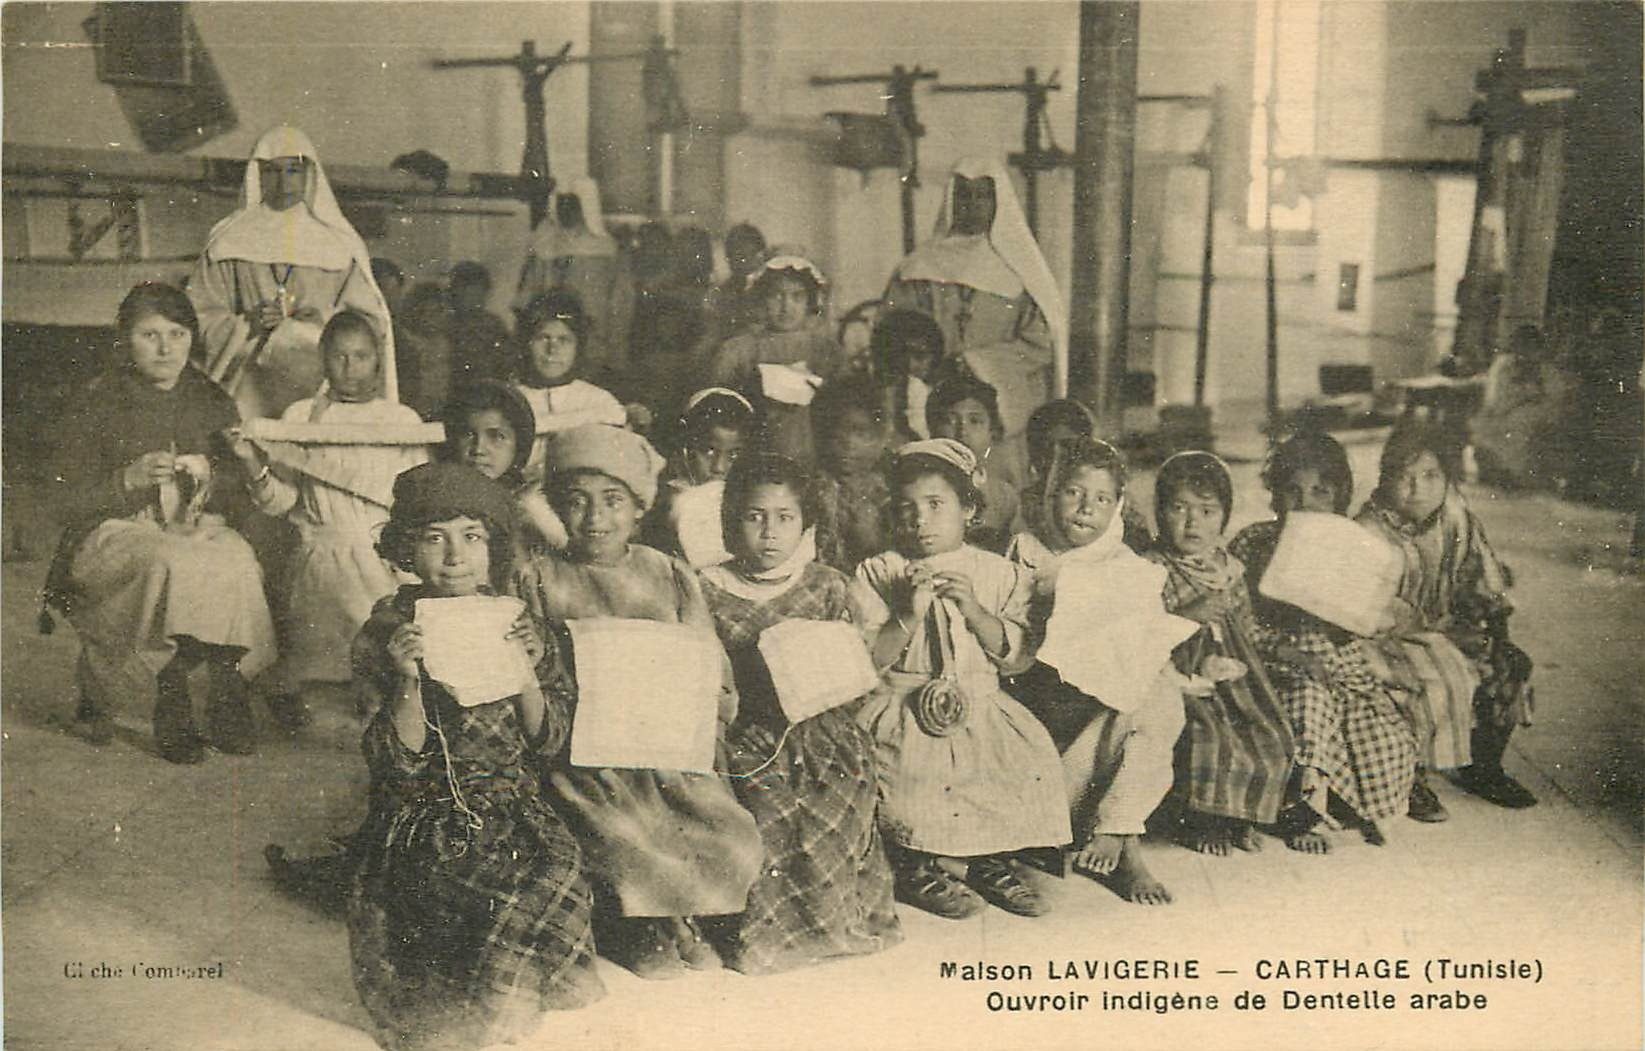 Maison LAVIGERIE — CARTHAGE (Tunisie)
Ouvroir indigène de Dentelle arabe
Cliché Combarel